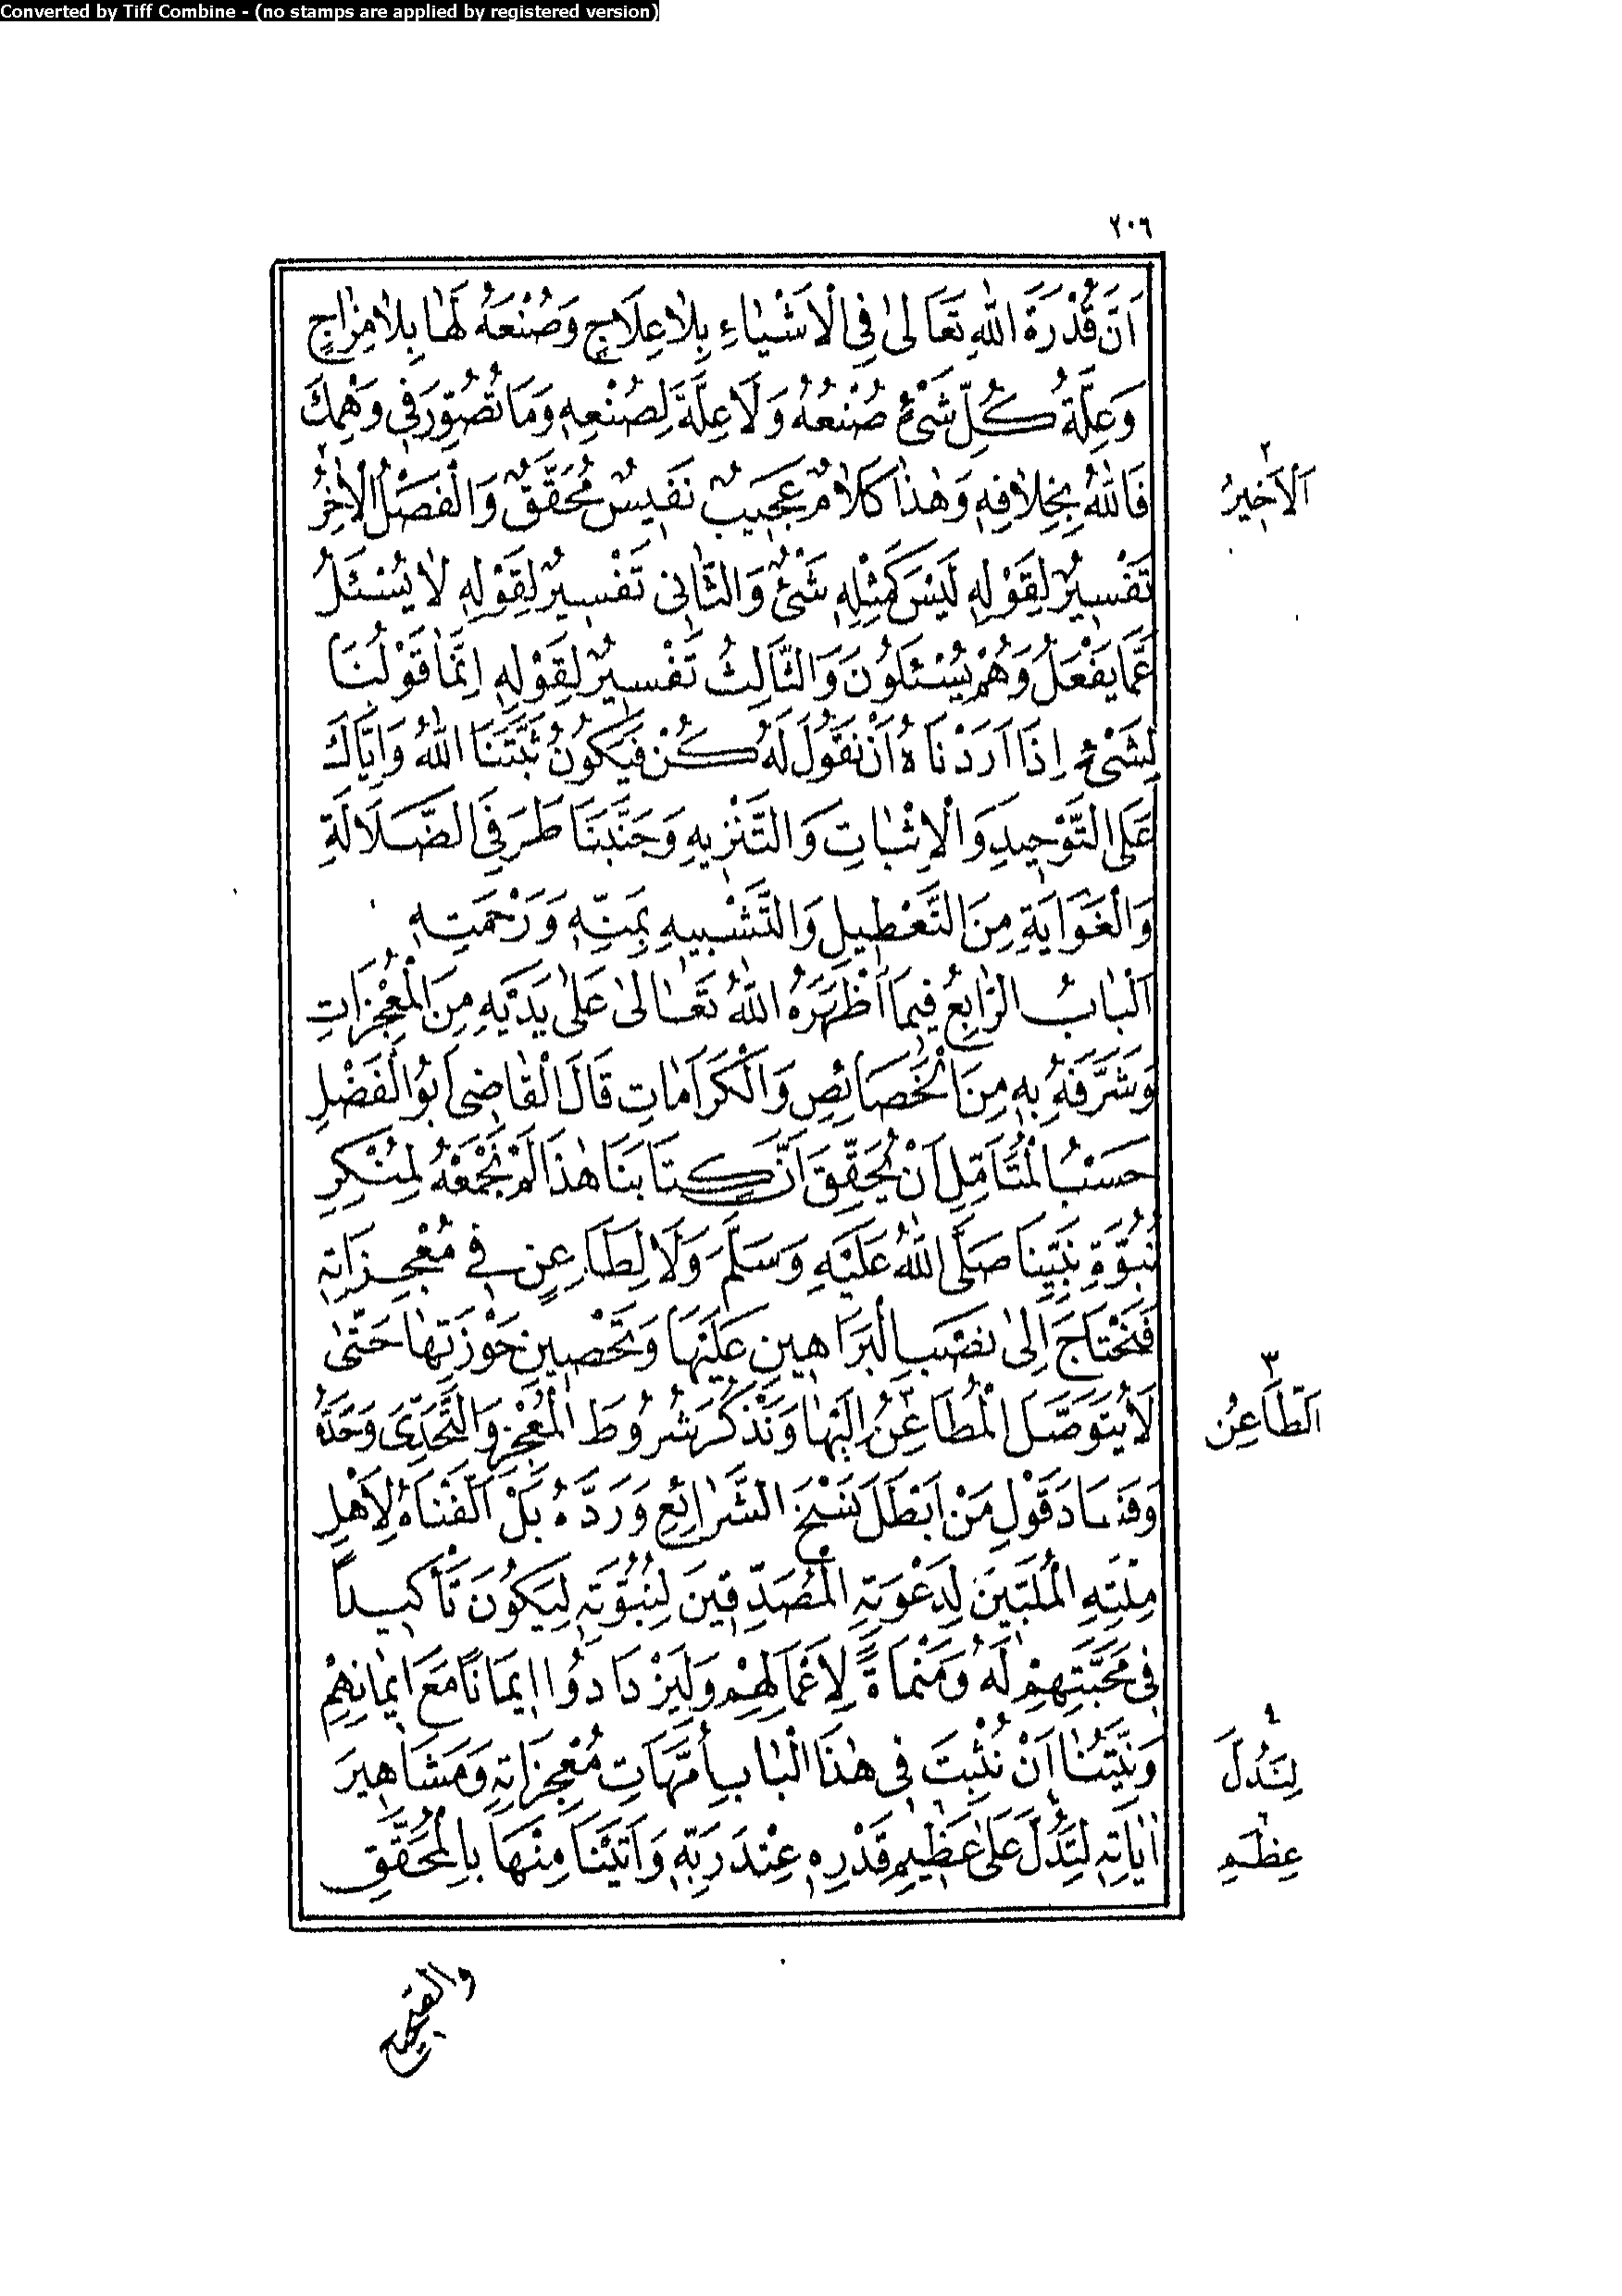 Converted by Tiff Combine - (no stamps are applied by registered version)
٢٠٦
اَنَّ قُدْرَةَ اللّٰهِ تَعَالٰى فِى الْاَشْيَاءِ بِلَا عِلَاجٍ وَصُنْعَهُ لَهَا بِلَا مِزَاجٍ
وَعِلَّةُ كُلِّ شَىْءٍ صُنْعُهُ وَلَا عِلَّةَ لِصُنْعِهِ وَمَا تُصُوِّرَ فِى وَهْمِكَ
فَاللّٰهُ بِخِلَافِهِ وَهٰذَا كَلَامٌ عَجِيبٌ نَفِيسٌ مُحَقَّقٌ وَالْفَصْلُ الْاٰخِرُ
٢
اَلْاَخِيرُ
تَفْسِيرٌ لِقَوْلِهِ لَيْسَ كَمِثْلِهِ شَىْءٌ وَالثَّانِى تَفْسِيرٌ لِقَوْلِهِ لَا يُسْئَلُ
عَمَّا يَفْعَلُ وَهُمْ يُسْئَلُونَ وَالثَّالِثُ تَفْسِيرٌ لِقَوْلِهِ اِنَّمَا قَوْلُنَا
لِشَىْءٍ اِذَا اَرَدْنَاهُ اَنْ نَقُولَ لَهُ كُنْ فَيَكُونُ ثَبَّتَنَا اللّٰهُ وَاِيَّاكَ
عَلَى التَّوْحِيدِ وَالْاِثْبَاتِ وَالتَّنْزِيهِ وَجَنَّبَنَا طَرَفَىِ الضَّلَالَةِ
وَالْغَوَايَةِ مِنَ التَّعْطِيلِ وَالتَّشْبِيهِ بِمَنِّهِ وَرَحْمَتِهِ
اَلْبَابُ الرَّابِعُ فِيمَا اَظْهَرَهُ اللّٰهُ تَعَالٰى عَلٰى يَدَيْهِ مِنَ الْمُعْجِزَاتِ
وَشَرَّفَهُ بِهِ مِنَ الْخَصَائِصِ وَالْكَرَامَاتِ قَالَ الْقَاضِى اَبُو الْفَضْلِ
حَسْبُ الْمُتَاَمِّلِ اَنْ يُحَقِّقَ اَنَّ كِتَابَنَا هٰذَا لَمْ نَجْمَعْهُ لِمُنْكِرِ
نُبُوَّةِ نَبِيِّنَا صَلَّى اللّٰهُ عَلَيْهِ وَسَلَّمَ وَلَا لِطَاعِنٍ فِى مُعْجِزَاتِهِ
فَنَحْتَاجَ اِلٰى نَصْبِ الْبَرَاهِينِ عَلَيْهَا وَتَحْصِينِ حَوْزَتِهَا حَتّٰى
لَا يَتَوَصَّلَ الْمُطَاعِنُ اِلَيْهَا وَنَذْكُرَ شُرُوطَ الْمُعْجِزِ وَالتَّحَدِّىَ وَحَدَّهُ
٣
اَلطَّاعِنُ
وَفَسَادَ قَوْلِ مَنْ اَبْطَلَ نَسْخَ الشَّرَائِعِ وَرَدَّهُ بَلْ اَلَّفْنَاهُ لِاَهْلِ
مِلَّتِهِ الْمُلَبِّينَ لِدَعْوَتِهِ الْمُصَدِّقِينَ لِنُبُوَّتِهِ لِيَكُونَ تَأْكِيدًا
فِى مَحَبَّتِهِمْ لَهُ وَمَنْمَاةً لِاَعْمَالِهِمْ وَلِيَزْدَادُوا اِيمَانًا مَعَ اِيمَانِهِمْ
وَنِيَّتُنَا اَنْ نُثْبِتَ فِى هٰذَا الْبَابِ اُمَّهَاتِ مُعْجِزَاتِهِ وَمَشَاهِيرَ
٤
لِنَدُلَّ
اٰيَاتِهِ لِتَدُلَّ عَلٰى عَظِيمِ قَدْرِهِ عِنْدَ رَبِّهِ وَاَتَيْنَا مِنْهَا بِالْمُحَقَّقِ
٦
عِظَمِ
والصحيح